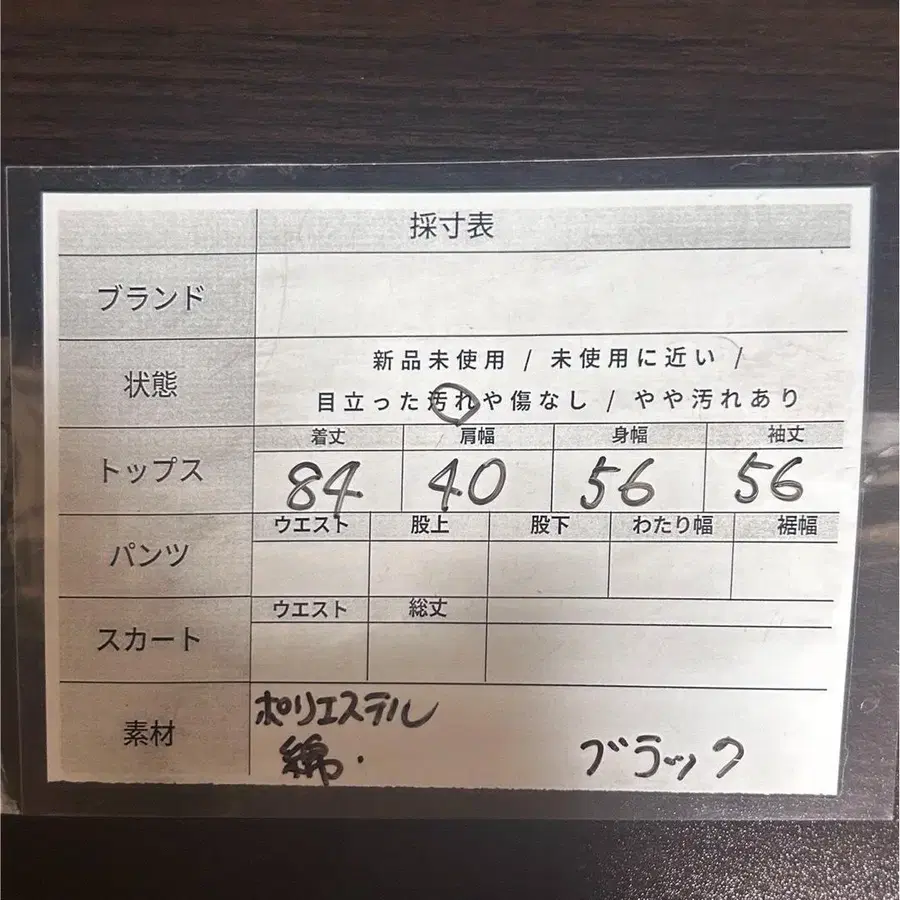 採寸表
ブランド
状態
新品未使用 / 未使用に近い /
目立った汚れや傷なし / やや汚れあり
トップス
着丈 肩幅 身幅 袖丈
84 40 56 56
パンツ
ウエスト 股上 股下 わたり幅 裾幅
スカート
ウエスト 総丈
素材
ポリエステル
綿.
ブラック